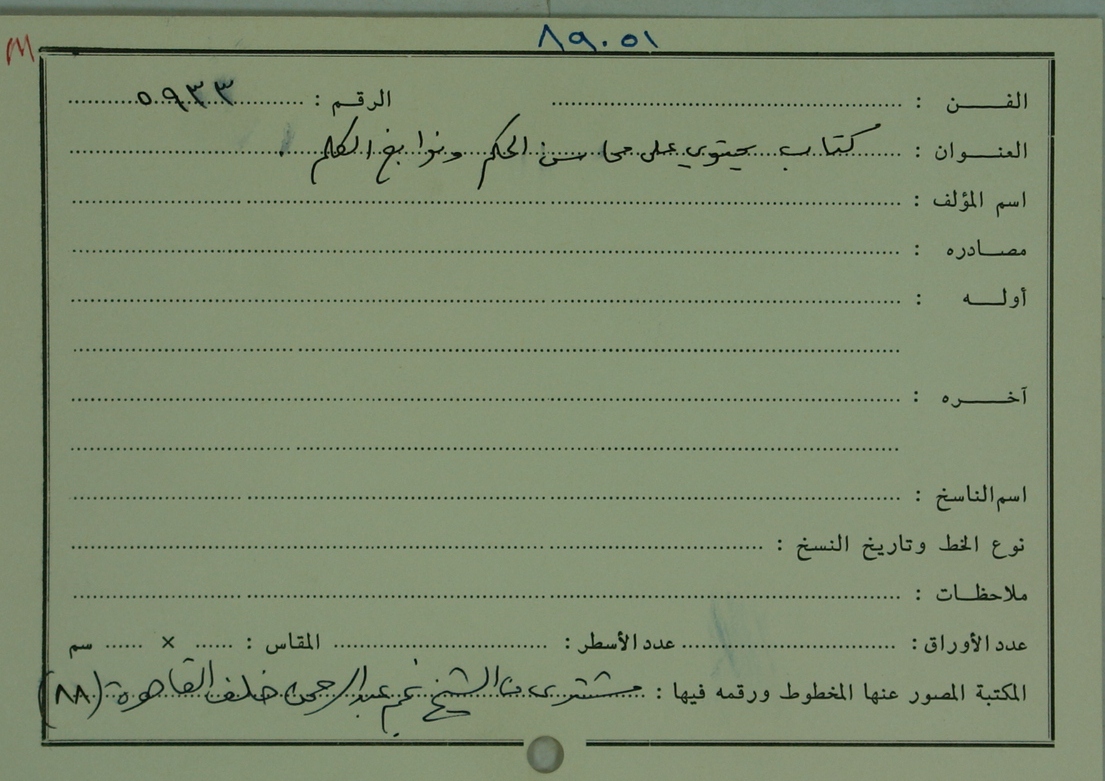 ٨٩٠٥١
الفن : الرقم : ٥٩٣٣
العنوان : كتاب يحتوي على محاسن الحكم ونوابغ الكلم .
اسم المؤلف :
مصادره :
أوله :
آخره :
اسم الناسخ :
نوع الخط وتاريخ النسخ :
ملاحظات :
عدد الأوراق : عدد الأسطر : المقاس : × سم
المكتبة المصور عنها المخطوط ورقمه فيها : مشترى من الشيخ عبد الرحمن خلف القاهرة (٨٨)